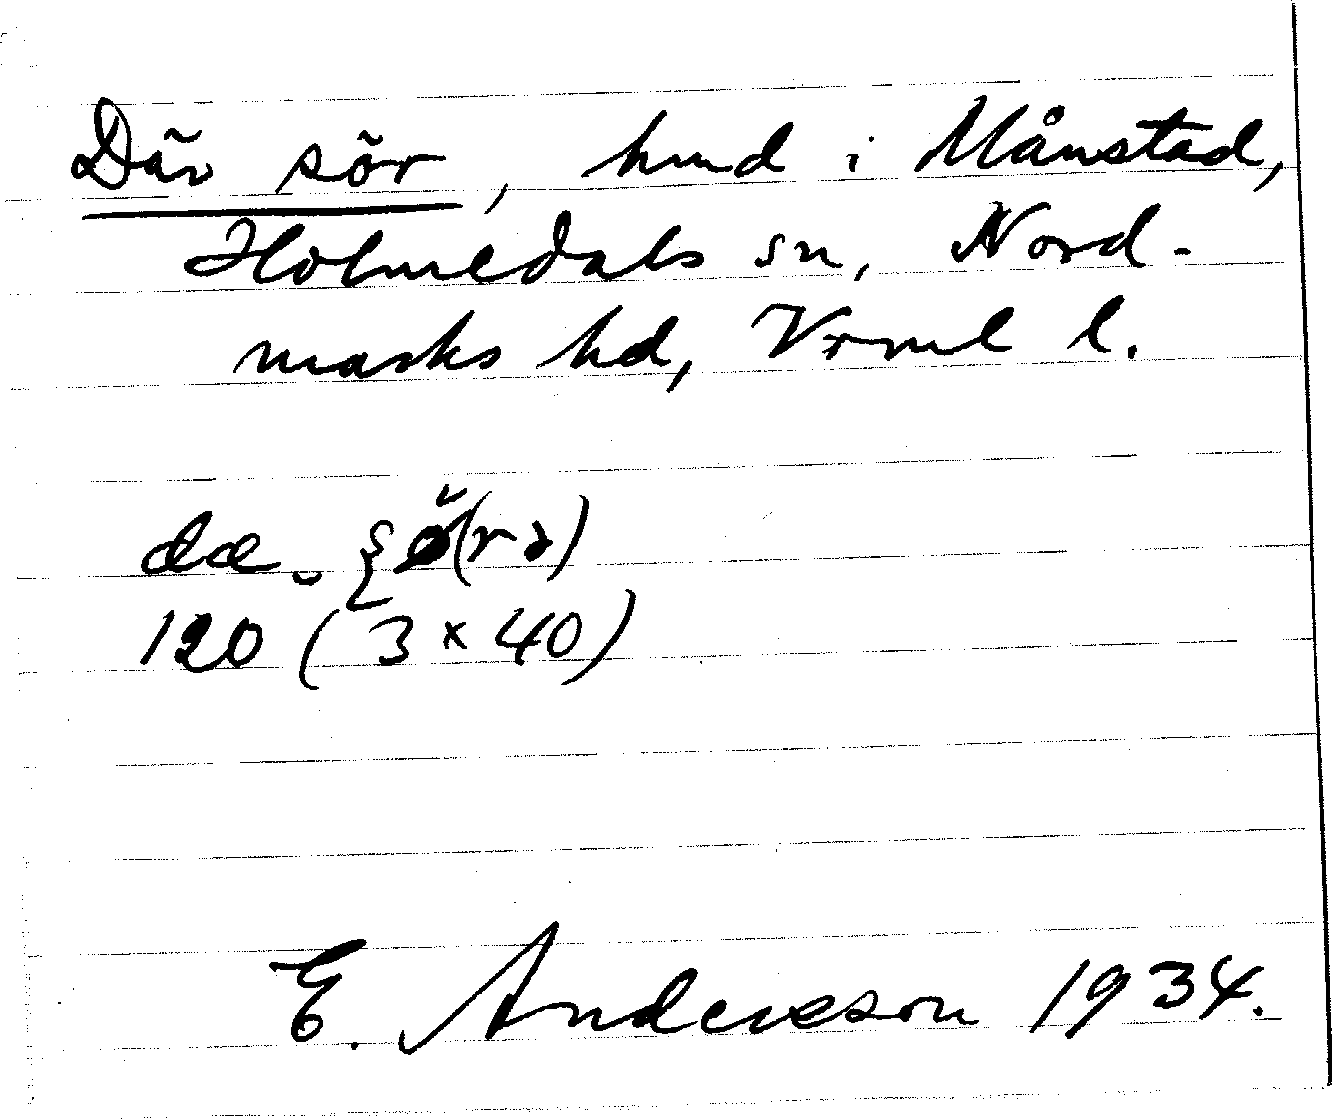 Där sör, hmd i Månstad,
Holmedals sn, Nord-
marks hd, Vrml l.
120 (3 x 40)
E. Andersson 1934.